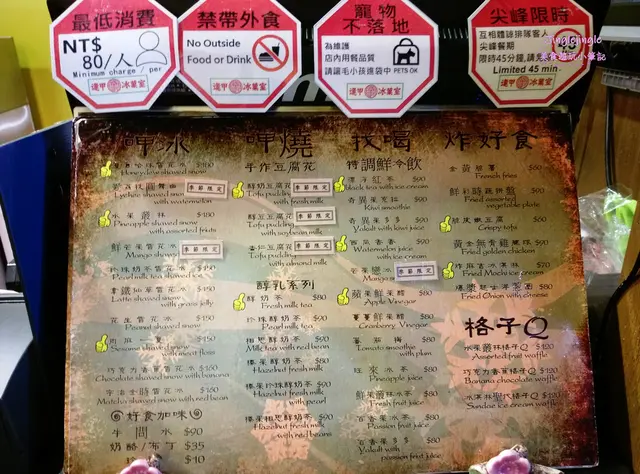 最低消費
NT$
80/人
Minimum charge / per
逢甲冰菓室
禁帶外食
No Outside
Food or Drink
逢甲冰菓室
寵物
不落地
為維護
店內用餐品質
PETS OK
請讓毛小孩進袋中
逢甲冰菓室
尖峰限時
互相體諒排隊客人
尖峰餐期
限時45分鐘
Limited 45 min
逢甲冰菓室
Jinglejingle
美食遊玩小筆記
呷冰
Honeydew shaved snow
Lychee shaved snow
with watermelon
季節限定
水果叢林 $180
Pineapple shaved snow
with assorted fruits
Mango shaved snow
季節限定
珍珠奶茶雪花冰
Pearl milk tea shaved ice
Latte shaved snow
with grass jelly
花生雪花冰
Peanut shaved snow
Sesame shaved snow
with meat floss
巧克力香蕉雪花冰
Chocolate shaved snow with banana
Matcha shaved snow with red bean
好食加味
牛間冰 $90
奶酪/布丁 $35
$10
呷燒
手作豆腐花
醇奶豆腐花
Tofu pudding
with milk
季節限定
醇豆豆腐花
Tofu pudding
with soybean milk
季節限定
杏仁豆腐花
Tofu pudding
with almond milk
季節限定
醇乳系列
醇奶茶 $80
Fresh milk tea
珍珠醇奶茶 $90
Pearl milk tea
相思醇奶茶 $90
Milk tea with red bean
榛果醇奶茶 $80
Hazelnut fresh milk
榛果珍珠醇奶茶 $90
Hazelnut fresh milk
with pearl
榛果相思醇奶茶 $90
Hazelnut fresh milk
with red beans
找喝
特調鮮冷飲
漂浮紅茶 $90
Black tea with ice cream
奇異果克拉 $90
Kiwi smoothie
奇異果多多 $90
Yakult with kiwi juice
西瓜香香 $90
Watermelon juice
with ice cream
芒果戀冰
Mango
季節限定
蘋果鮮果醋 $80
Apple Vinegar
蔓蔓鮮果醋 $80
Cranberry Vinegar
蕃茄梅 $80
Tomato smoothie
with plum
旺來冰茶 $80
Pineapple juice
鮮果冰茶 $80
Fresh fruit juice
百香果冰茶 $80
Passion fruit juice
百香果多多 $80
Yakult with
passion fruit juice
炸好食
黃金脆薯 $60
French fries
鮮彩時蔬拼盤 $90
Fried assorted
vegetable plate
脆皮嫩豆腐 $60
Crispy tofu
黃金無骨雞腿塊 $90
Fried golden chicken
炸麻吉冰淇淋 $70
Fried Mochi ice cream
Fried Onion with cheese
格子Q
水果叢林格子Q $120
Assorted fruit waffle
巧克力香蕉格子Q $120
Banana chocolate waffle
冰淇淋聖代格子Q $120
Sundae ice cream waffle